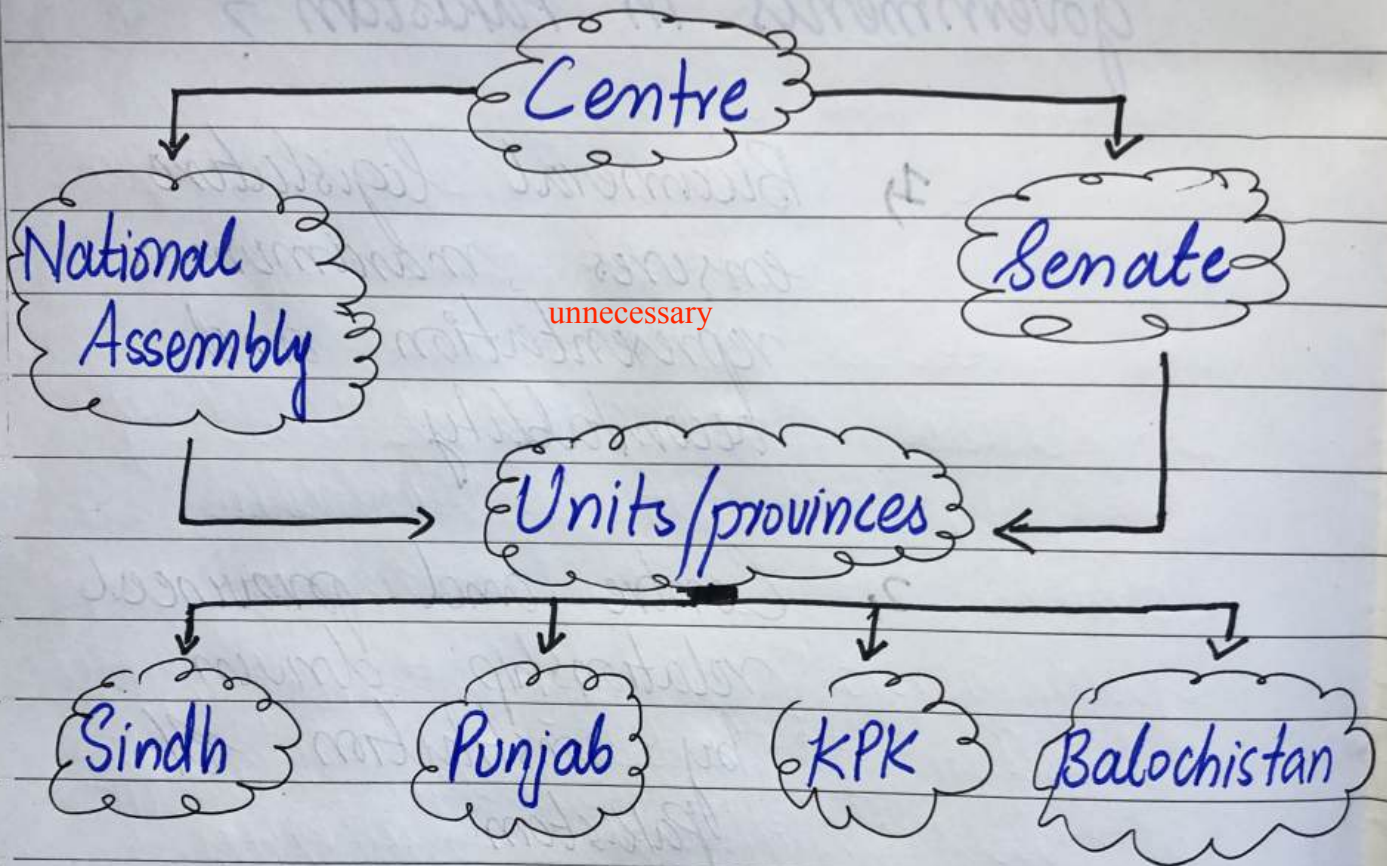 Centre
National
Assembly
Senate
unnecessary
Units/provinces
Sindh
Punjab
KPK
Balochistan